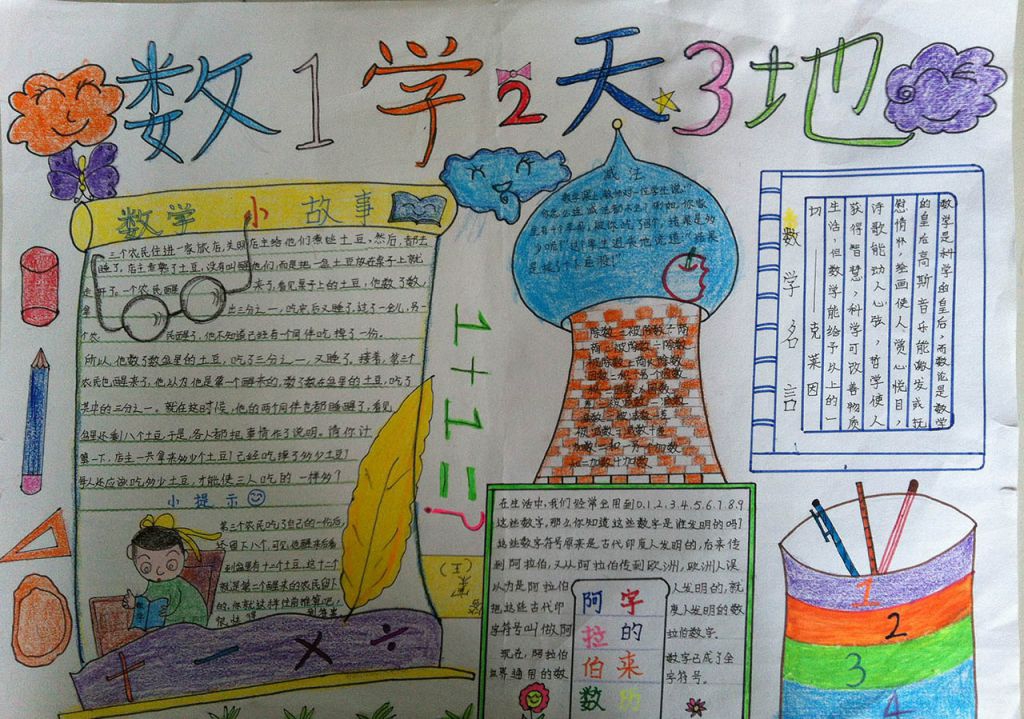 数1学2天3地
数学小故事
三个农民住进一家旅店,夫
店主给他们煮些土豆,然后,都去
睡了,店主煮熟了土豆,没有叫醒他们,而是把一盆土豆放在桌子上就
走开了。一个农民醒来了,看见桌子上的土豆,他数了数,
出三分之一,吃完后又睡了,过了一会儿,另一
个农民醒了,他不知道已经有一个同伴吃掉了一份。
所以,他数了数盆里的土豆,吃了三分之一,又睡了。接着,第三个
农民也醒来了,他以为他是第一个醒来的,数了数在盆里的土豆,吃了
其中的三分之一。就在这时候,他的两个同伴也都睡醒了,看见
盆里还剩八个土豆,于是,各人都把事情作了说明。请你计
算一下,店主一共拿来多少个土豆?已经吃掉了多少土豆?
每人还应该吃多少土豆,才能使三人吃的一样多?
小提示
第三个农民吃了自己的一份后,
还留下八个,可见,他醒来后看
到盆里有十二个土豆,这十二个
就是第二个醒来的农民留下
的。你就这样往前推算吧,
+ - × ÷
1+1=?
减法
数学课上,教师对一位学生说:
你怎么连减法都不会?例如,你家
里有十个苹果,被你吃了四个,结果是多
少呢?这个学生沮丧地说道:结果
是挨了十下屁股!
数学名言
数学是科学的皇后,而数论是数学
的皇后 高斯 音乐能激发或抚
慰情怀,绘画使人赏心悦目,
诗歌能动人心弦,哲学使人
获得智慧,科学可改善物质
生活,但数学能给予以上的一
切 ——克莱因
在生活中,我们经常会用到0.1.2.3.4.5.6.7.8.9
这些数字,那么你知道这些数字是谁发明的吗?
这些数字符号原来是古代印度人发明的,后来传
到阿拉伯,又从阿拉伯传到欧洲,欧洲人误
以为是阿拉伯人发明的,就
把这些古代印度人发明的数
字符号叫做阿拉伯数字。
现在,阿拉伯数字已成了全
世界通用的数字符号。
阿拉伯数
字的来历
1
2
3
4